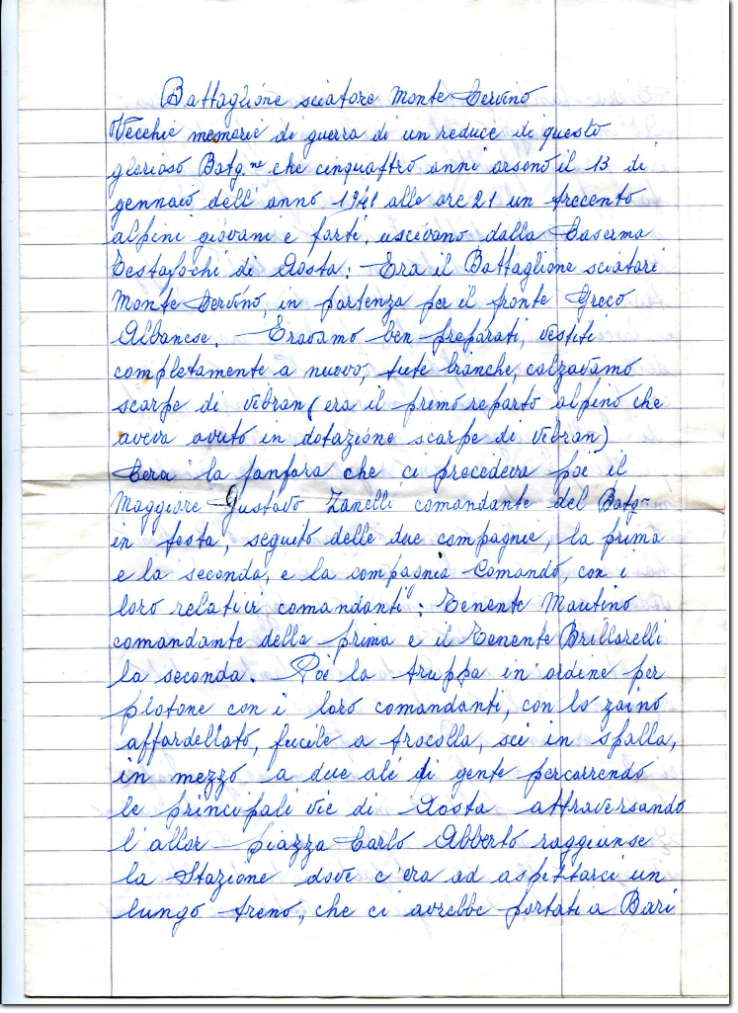 Battaglione sciatore Monte Cervino
Vecchie memorie di guerra di un reduce di questo
glorioso Batg.ne che cinquattro anni orsono il 13 di
gennaio dell' anno 1941 alle ore 21 un trecento
alpini giovani e forti, uscivano dalla Caserma
Testafochi di Aosta: Era il Battaglione sciatori
Monte Cervino, in partenza per il fronte Greco
Albanese. Eravamo ben preparati, vestiti
completamente a nuovo, tute bianche, calzavamo
scarpe di vibran (era il primo reparto alpino che
aveva avuto in dotazione scarpe di vibran)
Cera la fanfara che ci precedeva poi il
Maggiore Gustavo Zanelli comandante del Batg-
in testa, seguito delle due compagnie, la prima
e la seconda, e la compagnia Comando, con i
loro relativi comandanti: Tenente Mautino
comandante della prima e il Tenente Brillarelli
la seconda. Poi la truppa in ordine per
plotone con i loro comandanti, con lo zaino
affardellato, fucile a trocolla, sci in spalla,
in mezzo a due ali di gente percorrendo
le principali vie di Aosta attraversando
l'allor piazza Carlo Alberto raggiunse
la Stazione dove c'era ad aspettarci un
lungo treno, che ci avrebbe portati a Bari